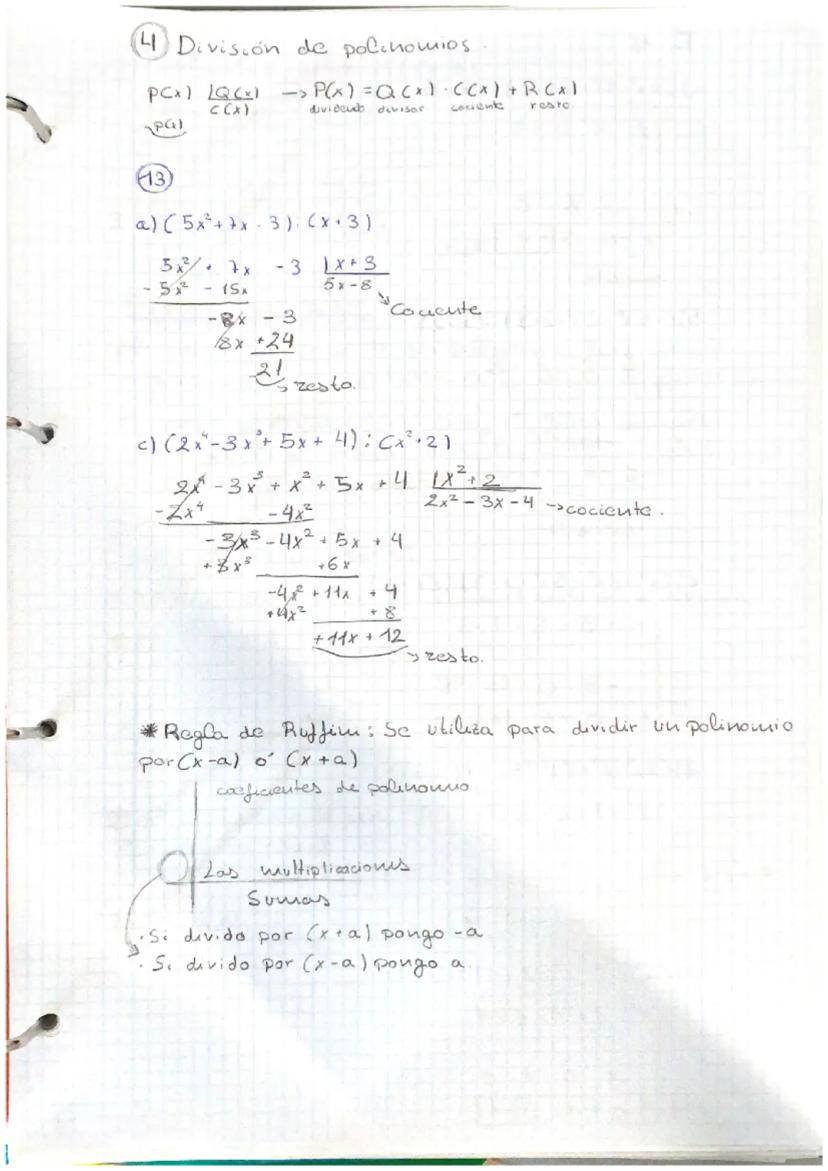 4 División de polinomios.
P(x) |Q(x) → P(x) = Q(x) · C(x) + R(x)
C(x) dividendo divisor cociente resto
13
a) (5x² + 7x - 3) : (x + 3)
5x² + 7x - 3 |x + 3
- 5x² - 15x 5x - 8
Cociente
- 8x - 3
8x + 24
21
→ resto.
c) (2x⁴ - 3x³ + 5x + 4) : (x² + 2)
2x⁴ - 3x³ + x² + 5x + 4 |x² + 2
- 2x⁴ - 4x² 2x² - 3x - 4 → cociente.
- 3x³ - 4x² + 5x + 4
+ 3x³ + 6x
- 4x² + 11x + 4
+ 4x² + 8
+ 11x + 12
→ resto.
* Regla de Ruffini: Se utiliza para dividir un polinomio
por (x - a) ó (x + a)
coeficientes de polinomio
Las multiplicaciones
Sumas
· Si divido por (x + a) pongo - a
· Si divido por (x - a) pongo a.